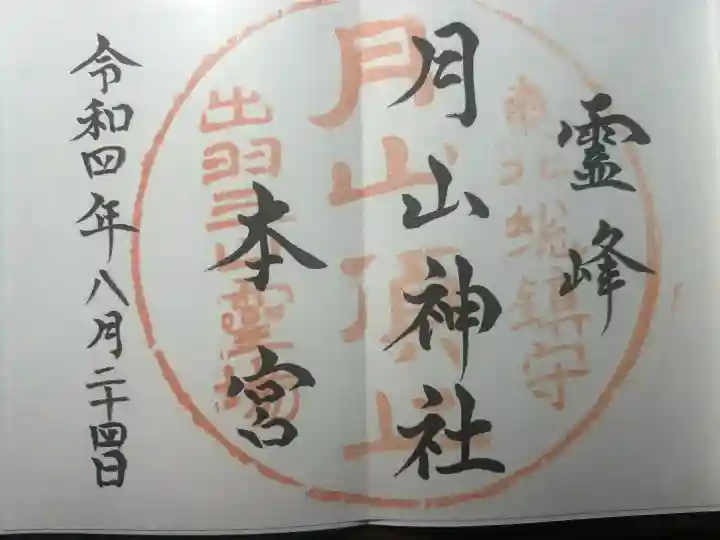 霊峰
月山神社
本宮
令和四年八月二十四日
東北総鎮守
月山頂上
出羽三山霊場